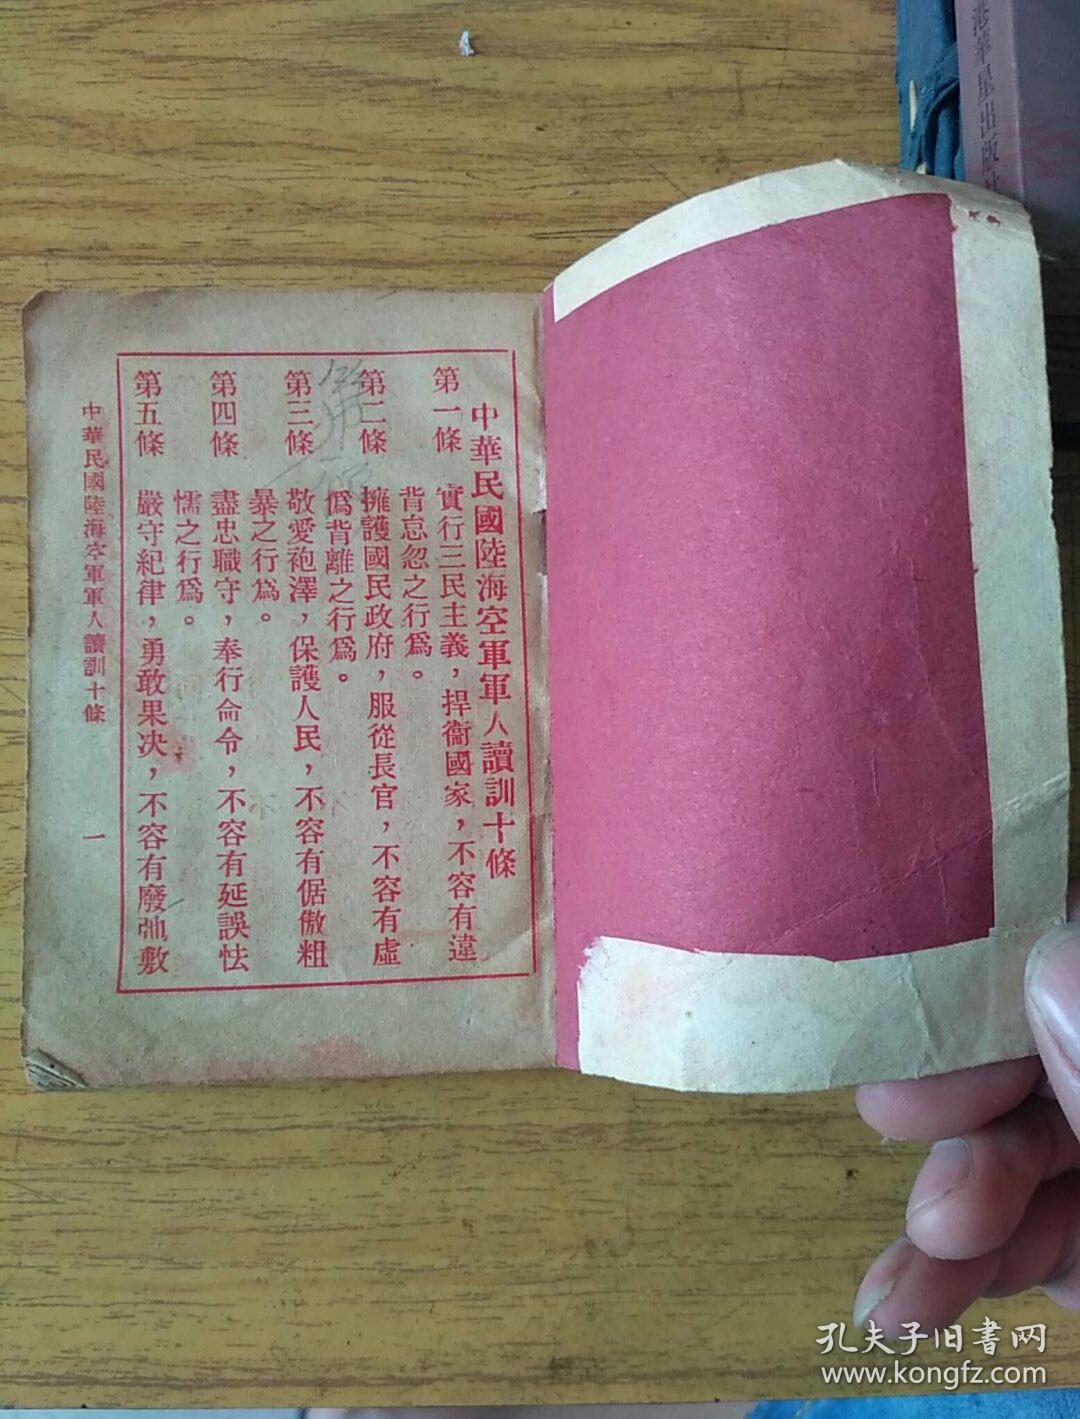 中華民國陸海空軍軍人讀訓十條
第一條　實行三民主義，捍衞國家，不容有違
背怠忽之行爲。
第二條　擁護國民政府，服從長官，不容有虛
僞背離之行爲。
第三條　敬愛袍澤，保護人民，不容有倨傲粗
暴之行爲。
第四條　盡忠職守，奉行命令，不容有延誤怯
懦之行爲。
第五條　嚴守紀律，勇敢果决，不容有廢弛敷
中華民國陸海空軍軍人讀訓十條　一
港華星出版社
孔夫子旧書网
www.kongfz.com